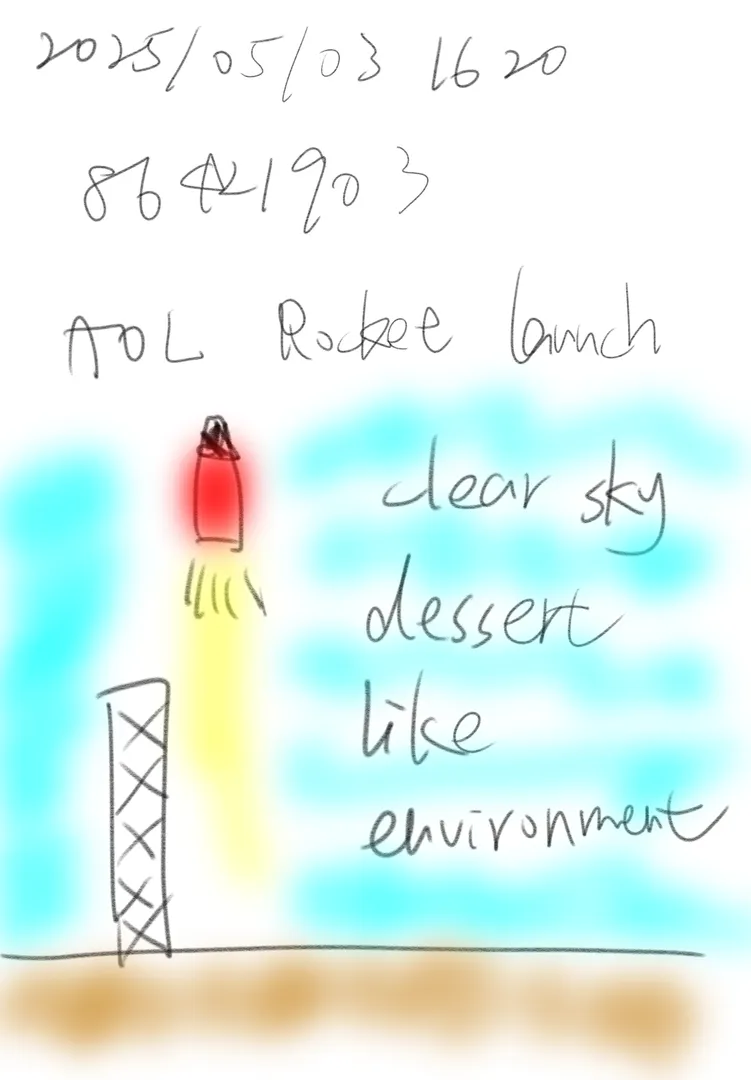 2025/05/03 1620
86421903
AOL Rocket launch
clear sky
dessert
like
environment